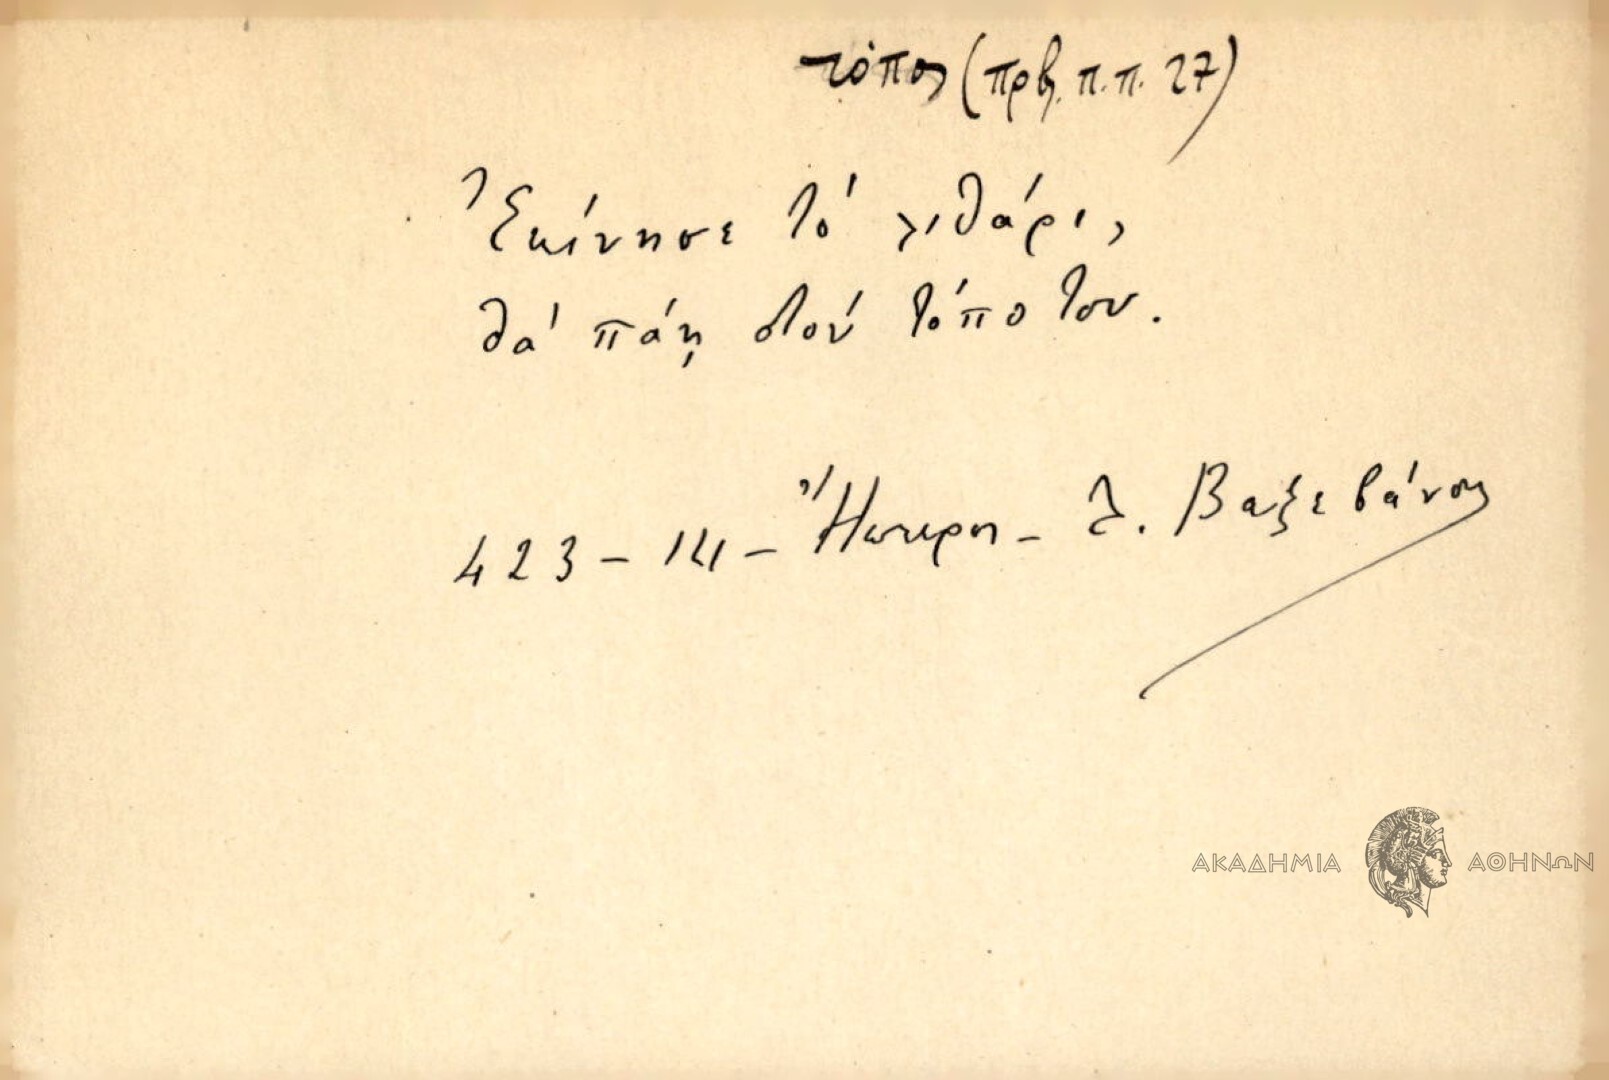 τόπος (πρβ. π.π. 27)
Ἐκίνησε τό λιθάρι,
θά πάῃ στόν τόπο του.
423 – – Ἤπειρος – Λ. Βαξεβάνος
ΑΚΑΔΗΜΙΑ ΑΘΗΝΩΝ